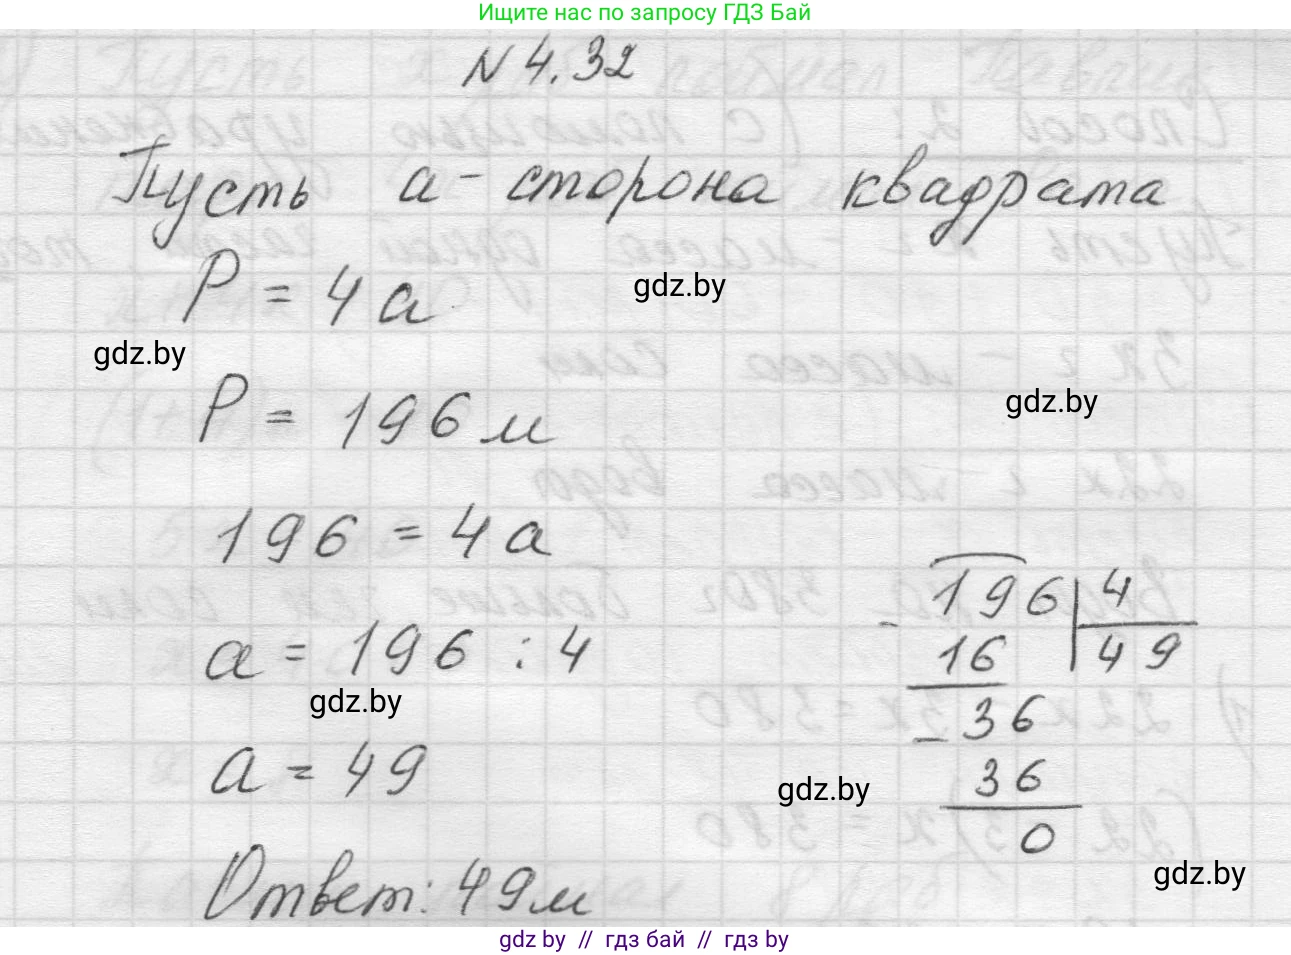 Ищите нас по запросу ГДЗ Бай
N 4.32
Пусть a - сторона квадрата
P = 4a
gdz.by
gdz.by
P = 196 м
gdz.by
196 = 4a
a = 196 : 4
gdz.by
a = 49
Ответ: 49 м
- 196 | 4
16 | 49
- 36
36
0
gdz.by
gdz.by
gdz by // гдз бай // гдз by